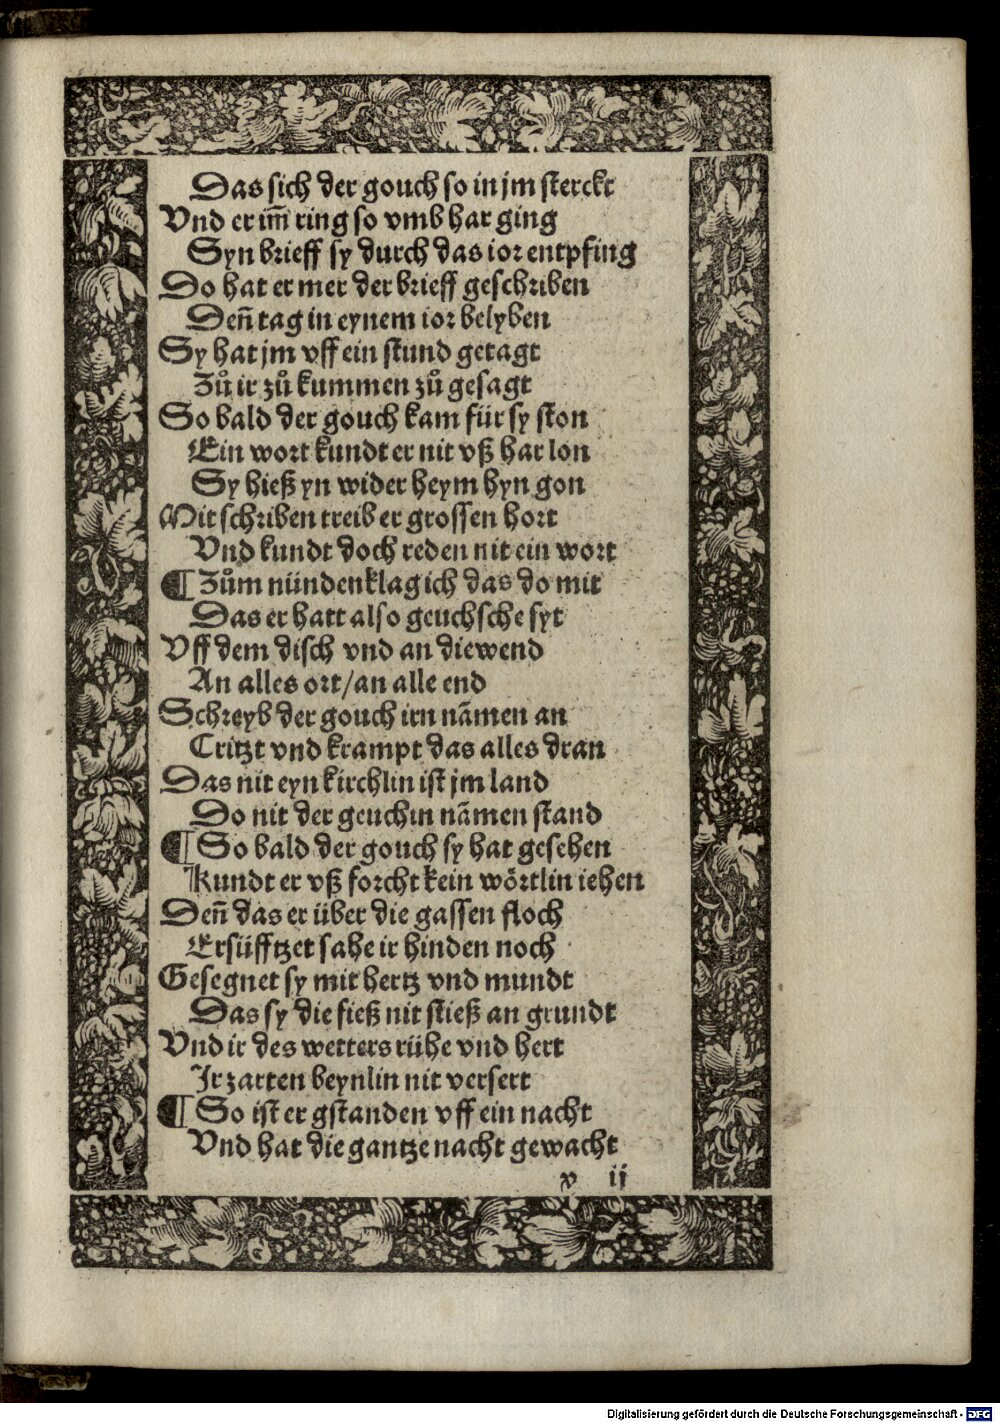 Das sich der gouch so in jm sterckt
Vnd er im̄ ring so vmb har ging
Syn brieff sy durch das ior entpfing
Do hat er mer der brieff geschriben
Den̄ tag in eynem ior belyben
Sy hat jm vff ein stund getagt
Zů ir zů kummen zů gesagt
So bald der gouch kam für sy ston
Ein wort kundt er nit vß har lon
Sy hieß yn wider heym hyn gon
Mit schriben treib er grossen hort
Vnd kundt doch reden nit ein wort
¶ Zům nünden klag ich das do mit
Das er hatt also geuchsche syt
Vff dem disch vnd an die wend
An alles ort/an alle end
Schreyb der gouch irn nāmen an
Critzt vnd krampt das alles dran
Das nit eyn kirchlin ist jm land
Do nit der geuchin nāmen stand
¶ So bald der gouch sy hat gesehen
Kundt er vß forcht kein wörtlin iehen
Den̄ das er über die gassen floch
Ersüfftzet sahe ir hinden noch
Gesegnet sy mit hertz vnd mundt
Das sy die fieß nit stieß an grundt
Vnd ir des wetters rühe vnd hert
Ir zarten beynlin nit versert
¶ So ist er gstanden vff ein nacht
Vnd hat die gantze nacht gewacht
v ij
Digitalisierung gefördert durch die Deutsche Forschungsgemeinschaft - DFG